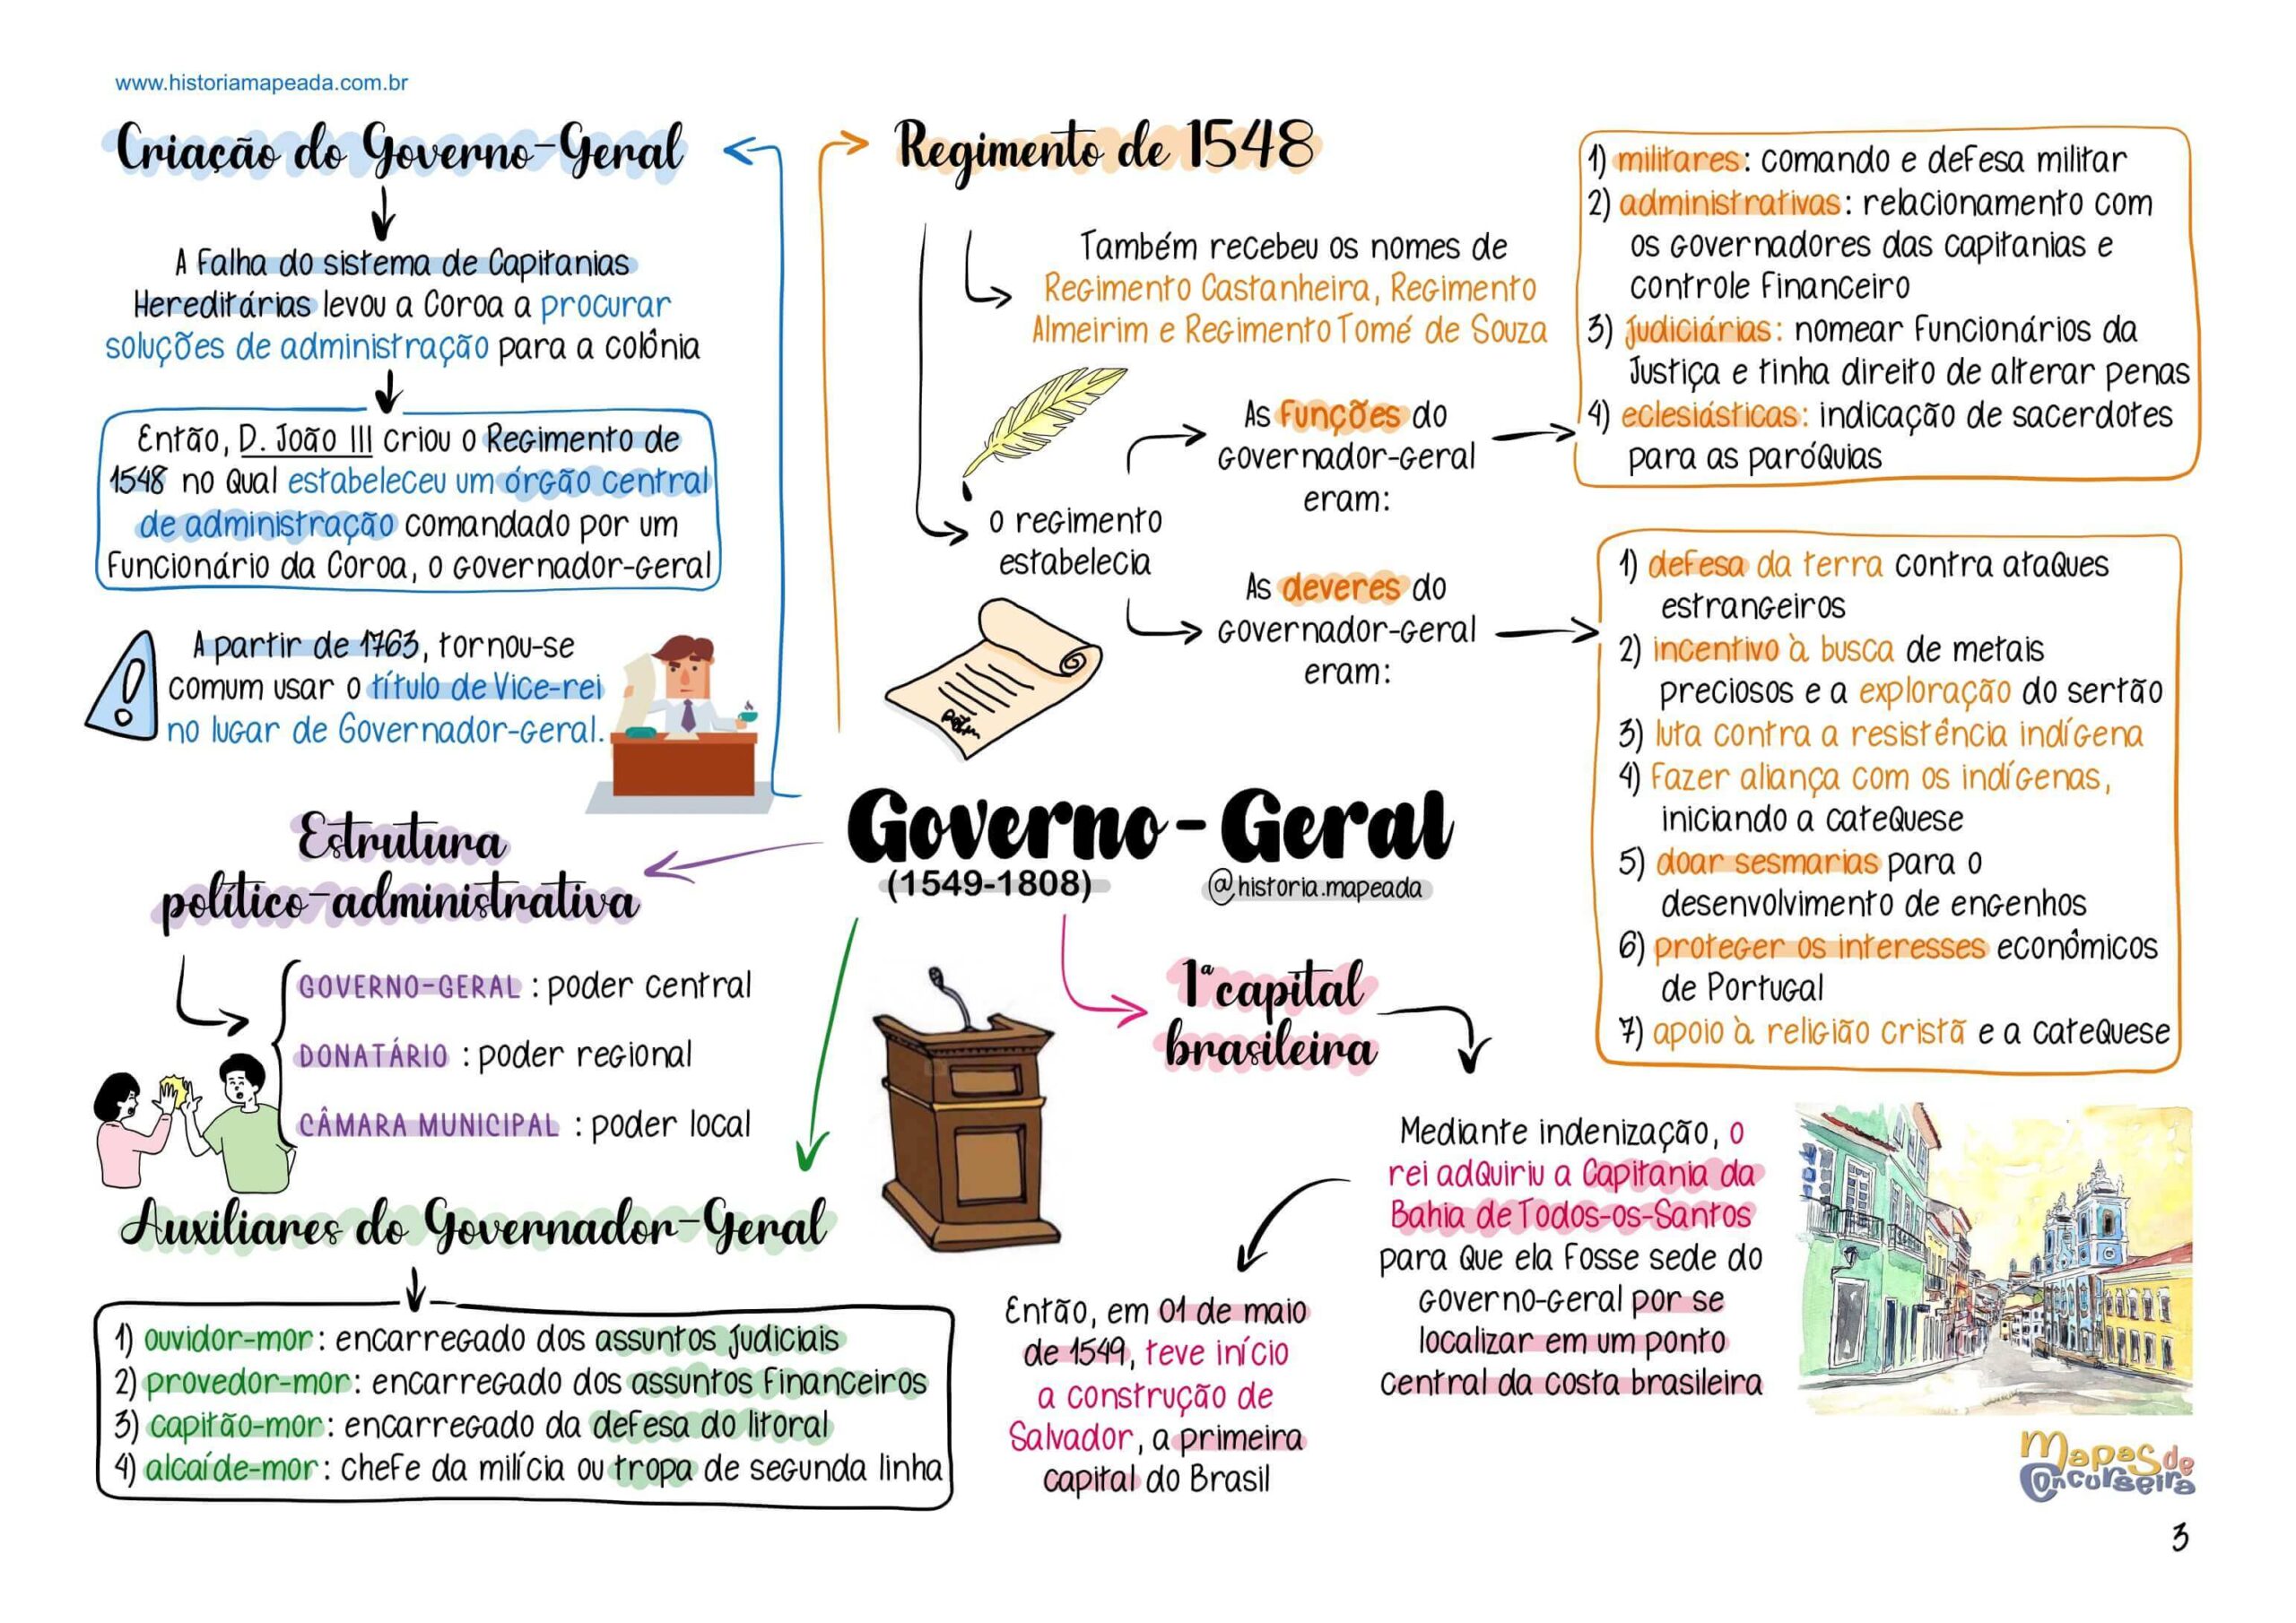 www.historiamapeada.com.br
Criação do Governo-Geral
A Falha do sistema de Capitanias
Hereditárias levou a Coroa a procurar
soluções de administração para a colônia
Então, D. João III criou o Regimento de
1548 no qual estabeleceu um órgão central
de administração comandado por um
Funcionário da Coroa, o Governador-Geral
A partir de 1763, tornou-se
comum usar o título de Vice-rei
no lugar de Governador-Geral.
Regimento de 1548
Também recebeu os nomes de
Regimento Castanheira, Regimento
Almeirim e Regimento Tomé de Souza
o regimento
estabelecia
As Funções do
Governador-Geral
eram:
1) militares: comando e defesa militar
2) administrativas: relacionamento com
os Governadores das capitanias e
controle Financeiro
3) judiciárias: nomear Funcionários da
Justiça e tinha direito de alterar penas
4) eclesiásticas: indicação de sacerdotes
para as paróquias
As deveres do
Governador-Geral
eram:
1) defesa da terra contra ataques
estrangeiros
2) incentivo à busca de metais
preciosos e a exploração do sertão
3) luta contra a resistência indígena
4) Fazer aliança com os indígenas,
iniciando a catequese
5) doar sesmarias para o
desenvolvimento de engenhos
6) proteger os interesses econômicos
de Portugal
7) apoio à religião cristã e a catequese
Governo-Geral
(1549-1808)
@historia.mapeada
Estrutura
político-administrativa
GOVERNO-GERAL : poder central
DONATÁRIO : poder regional
CÂMARA MUNICIPAL : poder local
Auxiliares do Governador-Geral
1) ouvidor-mor: encarregado dos assuntos judiciais
2) provedor-mor: encarregado dos assuntos Financeiros
3) capitão-mor: encarregado da defesa do litoral
4) alcaíde-mor: chefe da milícia ou tropa de segunda linha
1ª capital
brasileira
Mediante indenização, o
rei adquiriu a Capitania da
Bahia de Todos-os-Santos
para que ela Fosse sede do
Governo-Geral por se
localizar em um ponto
central da costa brasileira
Então, em 01 de maio
de 1549, teve início
a construção de
Salvador, a primeira
capital do Brasil
Mapas de
Concurseira
3